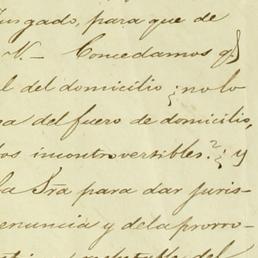 Jusgado, para que de
N.- Concedamos q.
l del domicilio; no lo
a del fuero de domicilio,
os incontroversibles.?; y
la Sra para dar juris-
enuncia y dela prorro-